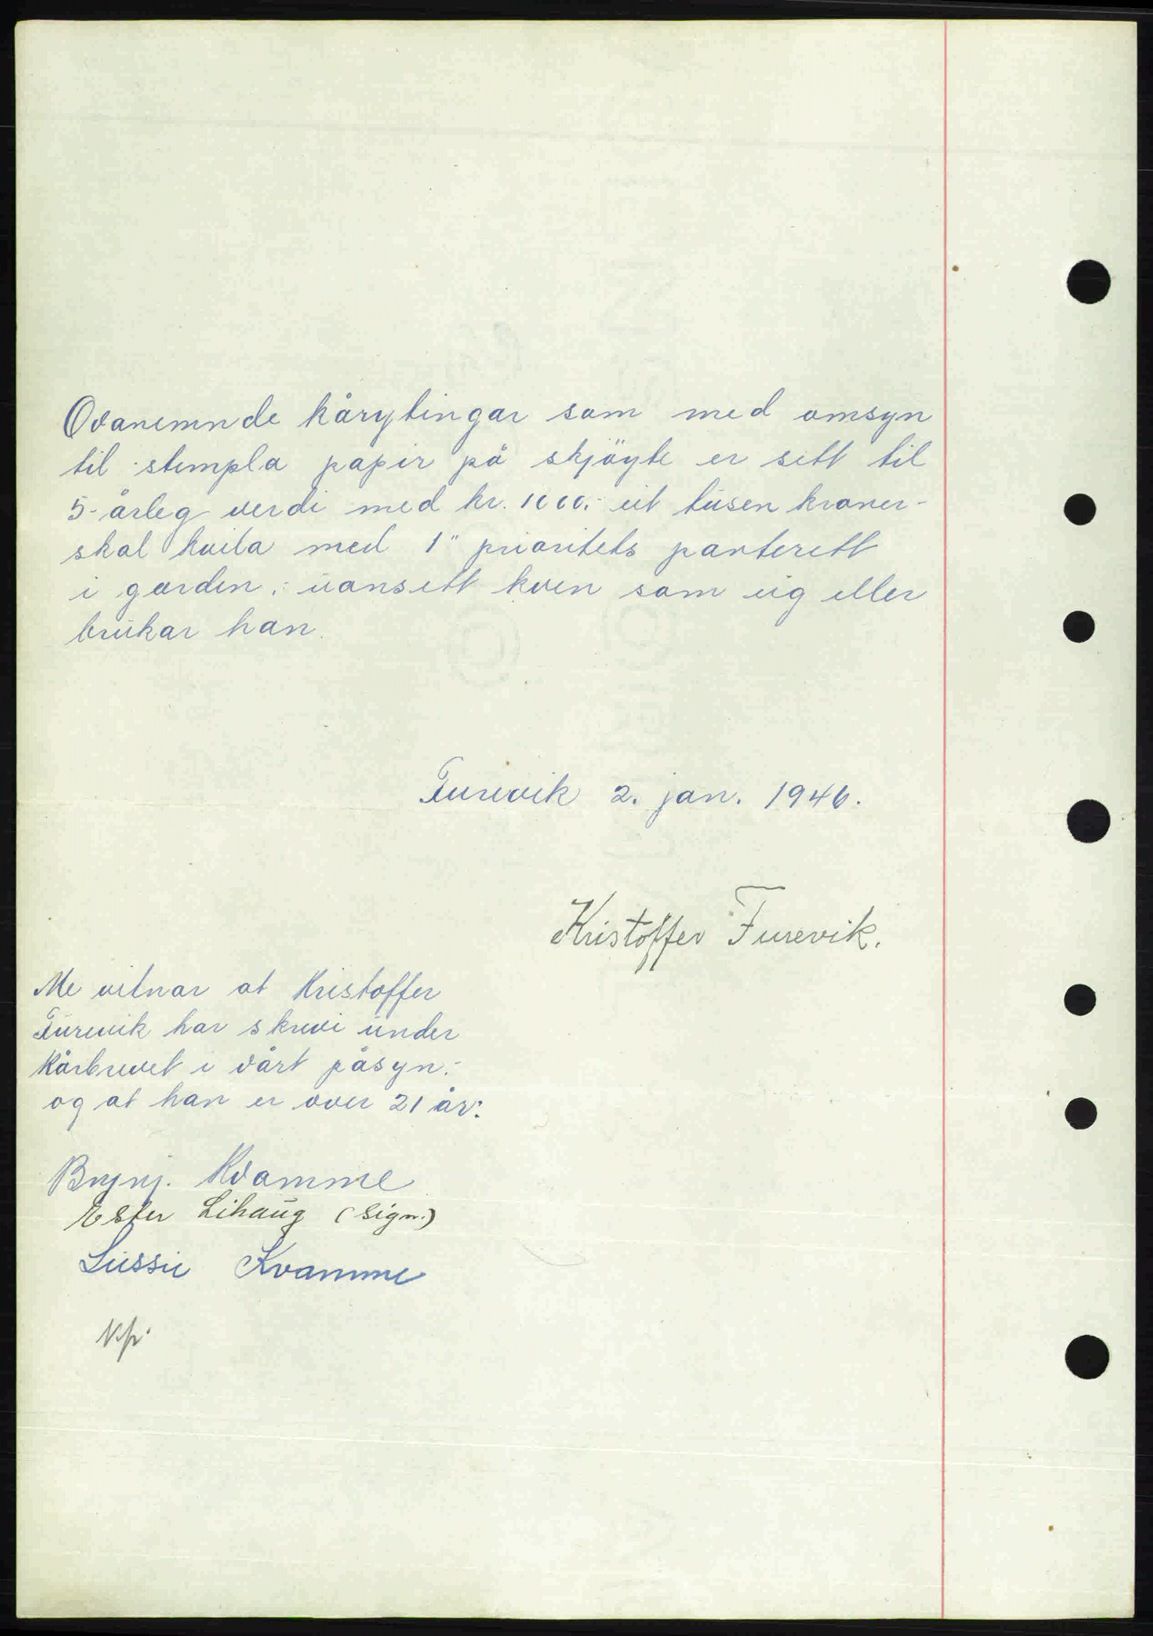 Ovanemnde kårytingar som med omsyn
til stempla papir på skjöyte er sett til
5-årleg verdi med kr. 1000,- eit tusen kroner -
skal kvila med 1" prioritets panterett
i garden, uansett kven som eig eller
brukar han.
Furevik 2. jan. 1946.
Kristoffer Furevik.
Me vitnar at Kristoffer
Furevik har skrivi under
Kårbrevet i vårt påsyn,-
og at han er over 21 år:
Brynj. Kvamme
Ester Lihaug (sign.)
Lissie Kvamme